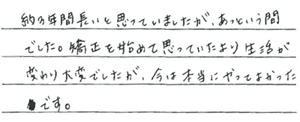 約2年間長いと思っていましたが、あっという間
でした。矯正を始めて思っていたより生活が
変わり大変でしたが、今は本当にやってよかった
です。